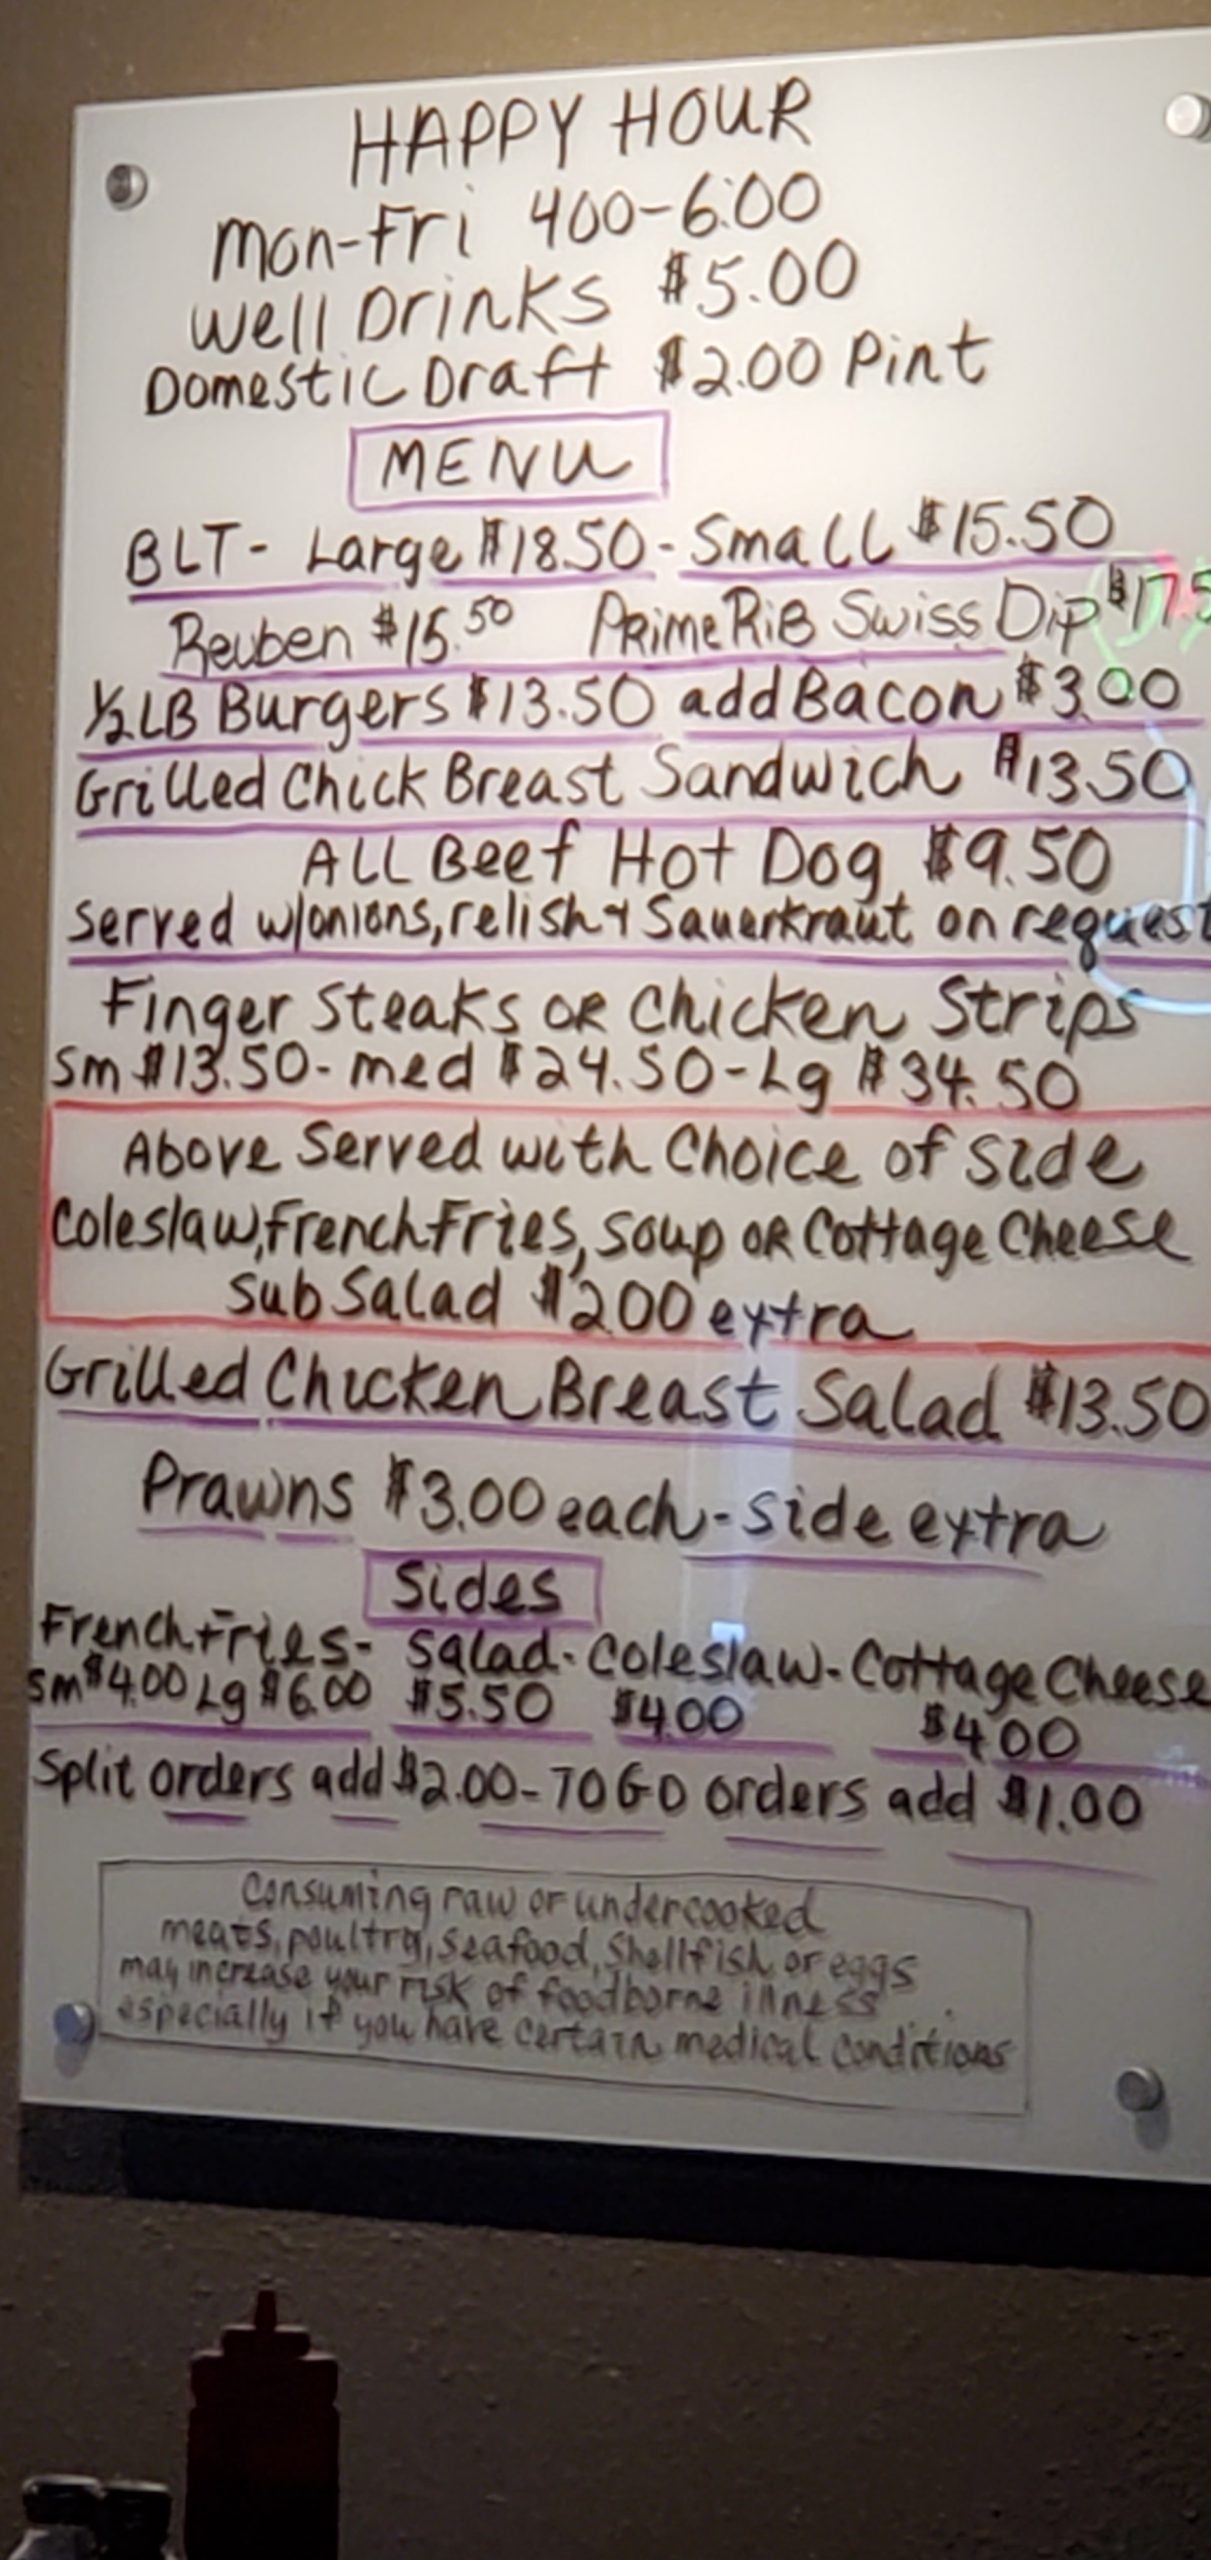 HAPPY HOUR
Mon-Fri 400-6:00
Well Drinks $5.00
Domestic Draft $2.00 Pint
MENU
BLT- Large $18.50-Small $15.50
Reuben $15.50 Prime Rib Swiss Dip $17.5
1/2 LB Burgers $13.50 add Bacon $3.00
Grilled Chick Breast Sandwich $13.50
ALL Beef Hot Dog $9.50
Served w/onions, relish + Sauerkraut on request
Finger Steaks OR Chicken Strips
Sm $13.50-med $24.50-Lg $34.50
Above Served with Choice of Side
Coleslaw, French Fries, Soup OR Cottage Cheese
Sub Salad $2.00 extra
Grilled Chicken Breast Salad $13.50
Prawns $3.00 each-side extra
Sides
French Fries- Salad- Coleslaw- Cottage Cheese
Sm $4.00 Lg $6.00 $5.50 $4.00 $4.00
Split orders add $2.00-TO GO orders add $1.00
Consuming raw or undercooked
meats, poultry, seafood, shellfish, or eggs
may increase your risk of foodborne illness
especially if you have certain medical conditions